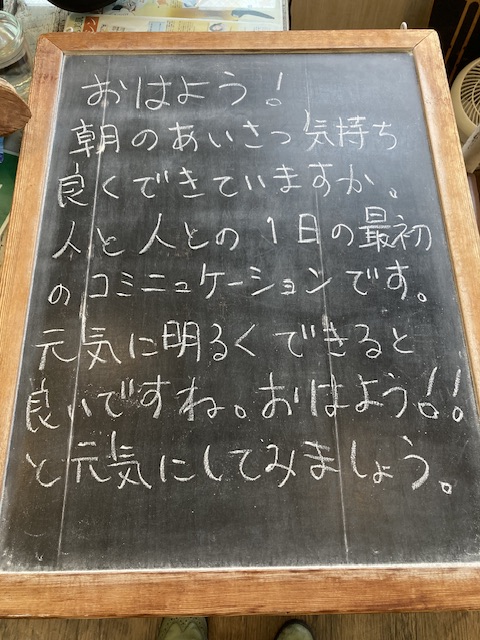 おはよう!
朝のあいさつ気持ち
良くできていますか。
人と人との1日の最初
のコミニュケーションです。
元気に明るくできると
良いですね。おはよう!!
と元気にしてみましょう。